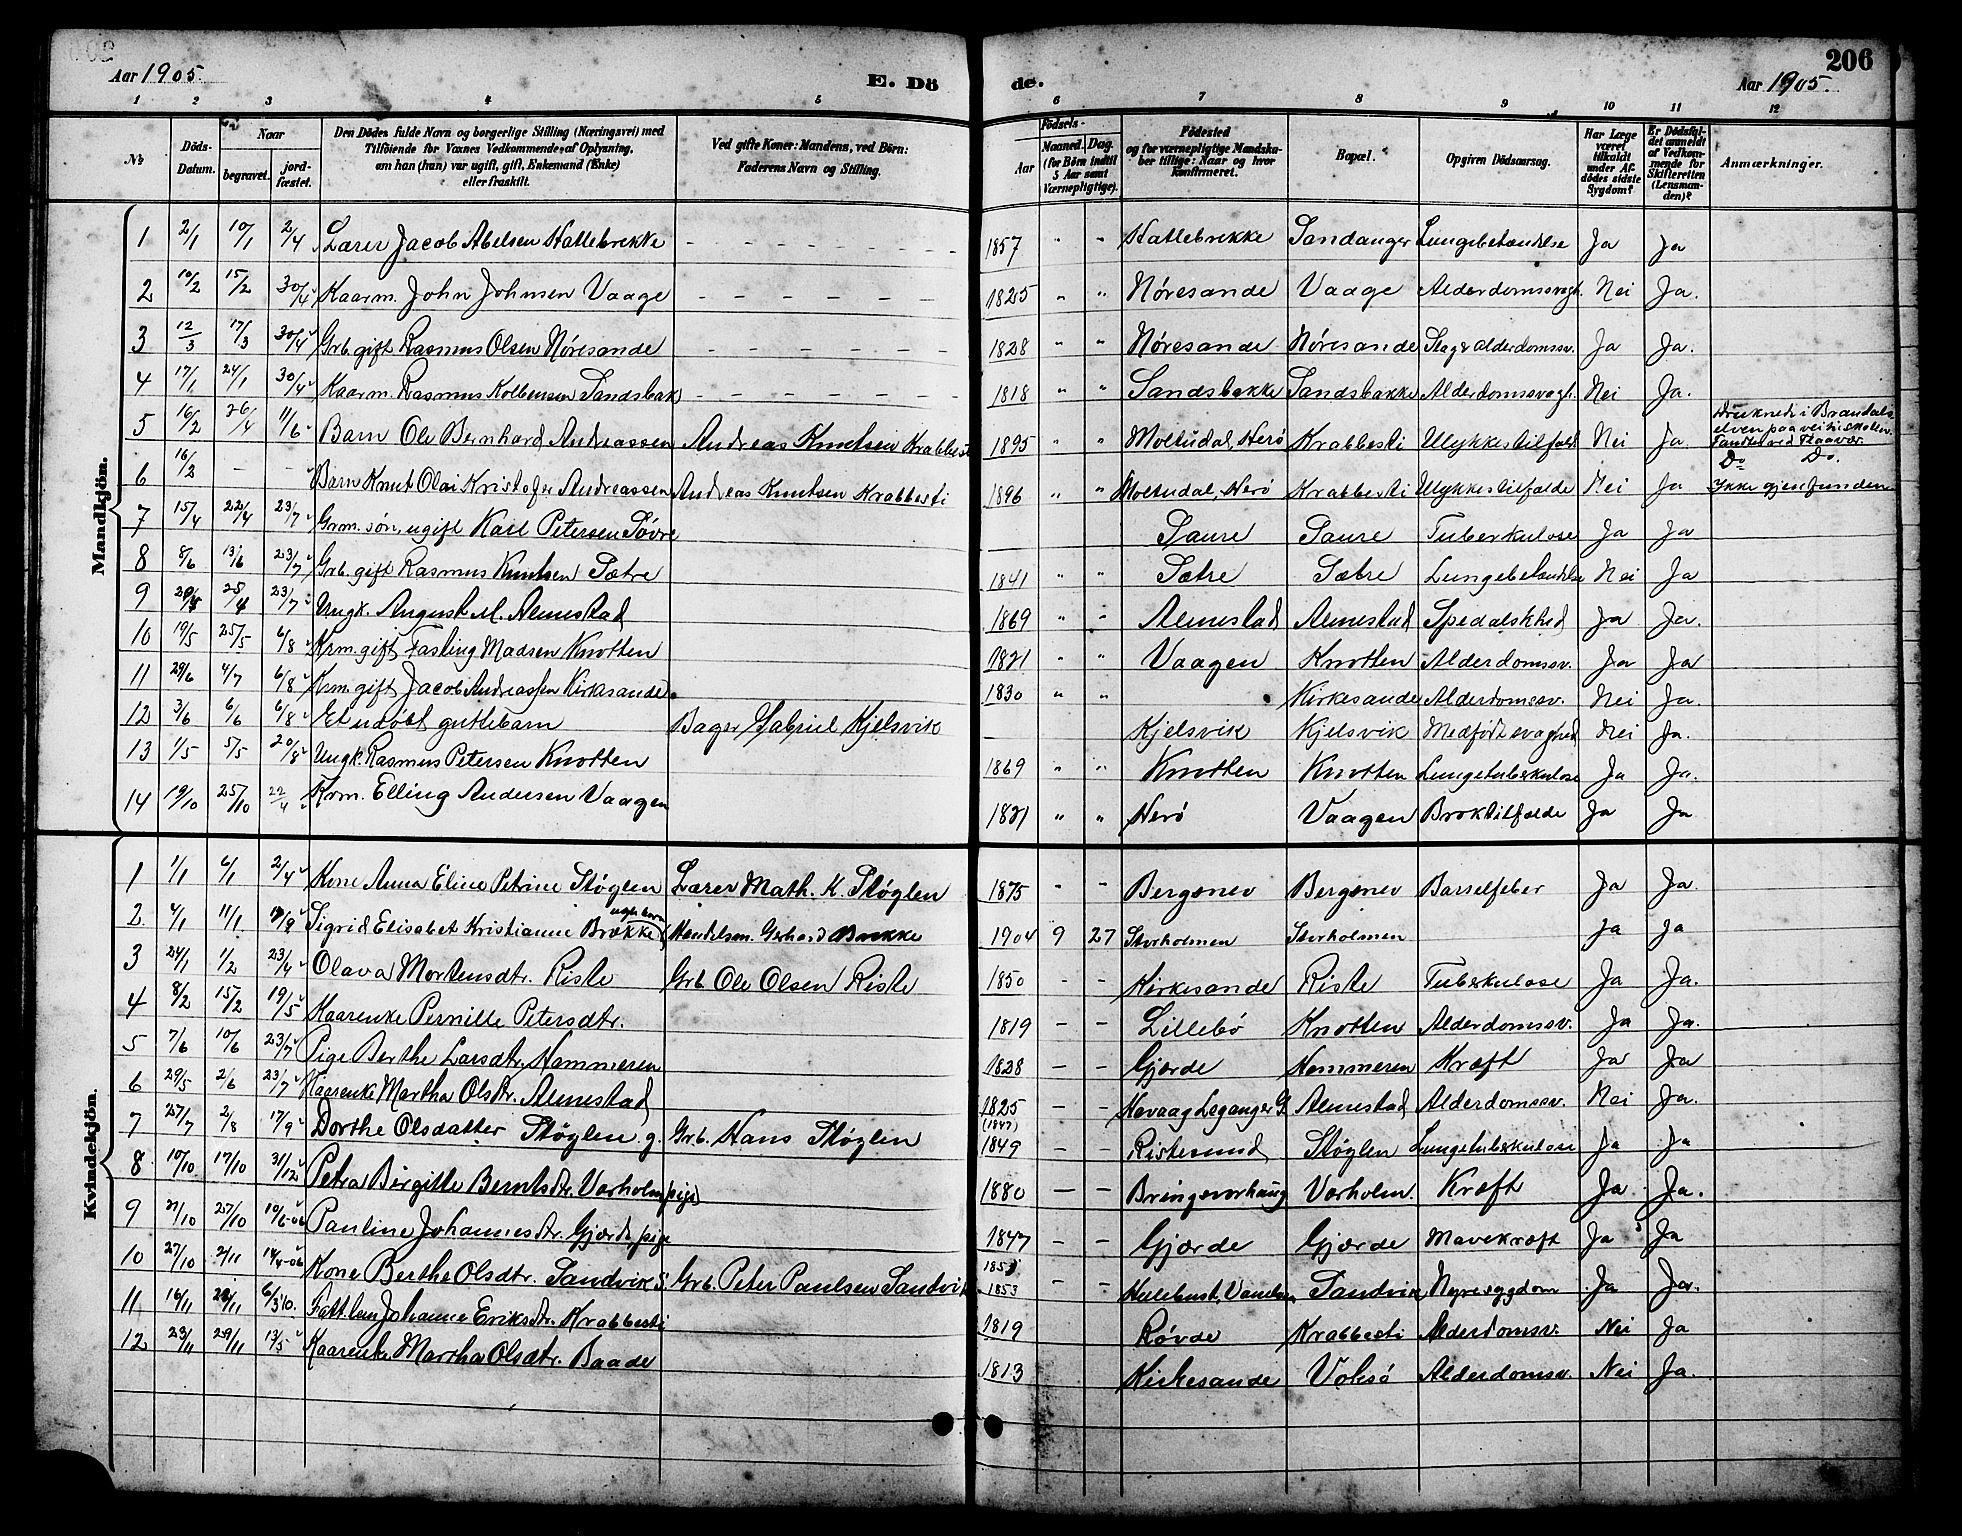 Aar 1905.
E. Dö
de.
206
Aar 1905.
1 2 3 4 5 6 7 8 9 10 11 12
No
Döds-Datum.
Naar
begravet.
jordfæstet.
Den Dödes fulde Navn og borgerlige Stilling (Næringsvei) med
Tilföiende for Voxnes Vedkommende, af Oplysning,
om han (hun) var ugift, gift, Enkemand (Enke)
eller fraskilt.
Ved gifte Koner: Mandens, ved Börn:
Faderens Navn og Stilling.
Födsels-
Aar
Maaned.
(for Börn indtil
5 Aar samt
Værnepligtige).
Dag.
Födested
og for værnepligtige Mandskaber tillige: Naar og hvor
konfirmeret.
Bopæl.
Opgiven Dödsaarsag.
Har Læge
været
tilkaldt
under Afdödes sidste
Sygdom?
Er Dödsfaldet anmeldt
af Vedkommende for
Skifteretten
(Lensmanden)?
Anmærkninger.
Mandkjön.
1 2/1 10/1 2/4 Lærer Jacob Abelsen Hallebrekke - - - 1857 " " Hallebrekke Sandanger Lungebetændelse Ja Ja
2 10/2 15/2 30/4 Kaarm. John Johnsen Vaage - - - 1825 " " Nøresande Vaage Alderdomssvagh. Nei Ja.
3 12/3 17/3 30/4 Grb. gift Rasmus Olsen Nøresande - - - 1828 " " Nøresande Nøresande Slag & alderdomssv. Ja Ja.
4 17/1 24/1 30/4 Kaarm. Rasmus Kolbensen Sandsbak - - - 1818 " " Sandsbakke Sandsbakke Alderdomssvagh. Nei Ja.
5 16/2 26/4 11/6 Barn Ole Bernhard Andreassen Andreas Knutsen Krabbesti 1895 " " Moltudal, Herö Krabbesti Ulykkestilfæld Nei Ja. Druknede i Brandals elven paa vei til skolen. Fandtes ved Flaavær.
6 16/2 - - Barn Knut Olai Kristofer Andreassen Andreas Knutsen Krabbesti 1896 " " Moltudal, Herö Krabbesti Ulykkestilfælde Nei Ja Do Do. Ikke gjenfunden
7 15/4 22/4 23/7 Grm. søn, ugift Karl Petersen Søvre Saure Saure Tuberkulose Ja Ja
8 8/6 13/6 23/7 Grb. gift Rasmus Knutsen Sætre 1841 " " Sætre Sætre Lungebetændelse Nei Ja
9 28/4 23/7 Ungk. August M. Almestad 1869 " - Almestad Almestad Spedalskhed Ja Ja.
10 19/5 25/5 6/8 Krm. gift Fasling Madsen Knotten 1821 " " Vaagen Knotten Alderdomssv. Ja Ja
11 29/6 4/7 6/8 Krm. gift Jacob Andreassen Kirkesande 1830 " " Kirkesande Alderdomssv. Nei Ja.
12 3/6 6/6 6/8 Et udøbt guttebarn Bager Gabriel Kjelsvik - Kjelsvik Kjelsvik Medfødt svaghed Nei Ja.
13 1/5 5/5 20/8 Ungk. Rasmus Petersen Knotten 1869 " " Knotten Knotten Lungetuberkulose Ja Ja.
14 19/10 25/10 22/4 Krm. Elling Andersen Vaagen 1821 " " Herö Vaagen Broktilfælde Ja Ja
Kvindekjön.
1 1/1 6/1 2/4 Kone Anna Eline Petrine Støylen Lærer Math. K. Støylen 1875 " - Bergsnev Bergsnev Barselfeber Ja Ja.
2. 4/1 11/1 Sigrid Elisabet Kristianne Brække Handelsm. Gerhard Brække 1904 9 27 Storholmen Storholmen Ja Ja
3 24/1 1/2 23/4 Olava Mortensdtr. Riste Grb. Ole Olsen Riste 1850 - - Kirkesande Riste Tuberkulose Ja Ja.
4 8/2 15/2 19/5 Kaarenke Pernille Petersdtr. 1819 - - Lillebö Knotten Alderdomssv. Ja Ja.
5 7/6 10/6 23/7 Pige Berthe Larsdtr. Hammeren 1828 - - Gjerde Hammeren Kræft Ja Ja
6 29/5 2/6 23/7 Kaarenke Martha Olsdtr. Almestad 1825 - - Havaag Leganger G Almestad Alderdomssv. Nei Ja.
7 27/7 2/8 17/9 Dorthe Olsdatter Støylen g. Grb. Hans Støylen (1847) 1849 - - Ristesund Støylen Lungetuberkulose Ja Ja
8 10/10 17/10 31/12 Petra Birgitte Berntsdtr. Vorholm, pige 1880 - - Bringsvorhaug Vorholm. Kræft Ja Ja.
9 21/10 27/10 10/6-06 Pauline Johannesdtr. Gjærde, pige 1847 - - Gjærde Gjærde Mavekræft Ja Ja
10 27/10 2/11 14/4-06 Kone Berthe Olsdtr. Sandvik S. Grb. Peter Paulsen Sandvik 1853 " - Sandvik Nyresygdom Ja Ja.
11 16/11 6/3 10. Fattilem Johanne Eriksdtr. Krabbesti 1819 Røvde Krabbesti Alderdomsv. Nei Ja
12 23/11 29/11 13/5 Kaarenke Martha Olsdtr. Baade 1813 Kirkesande Voksø Alderdomsv. Nei Ja.